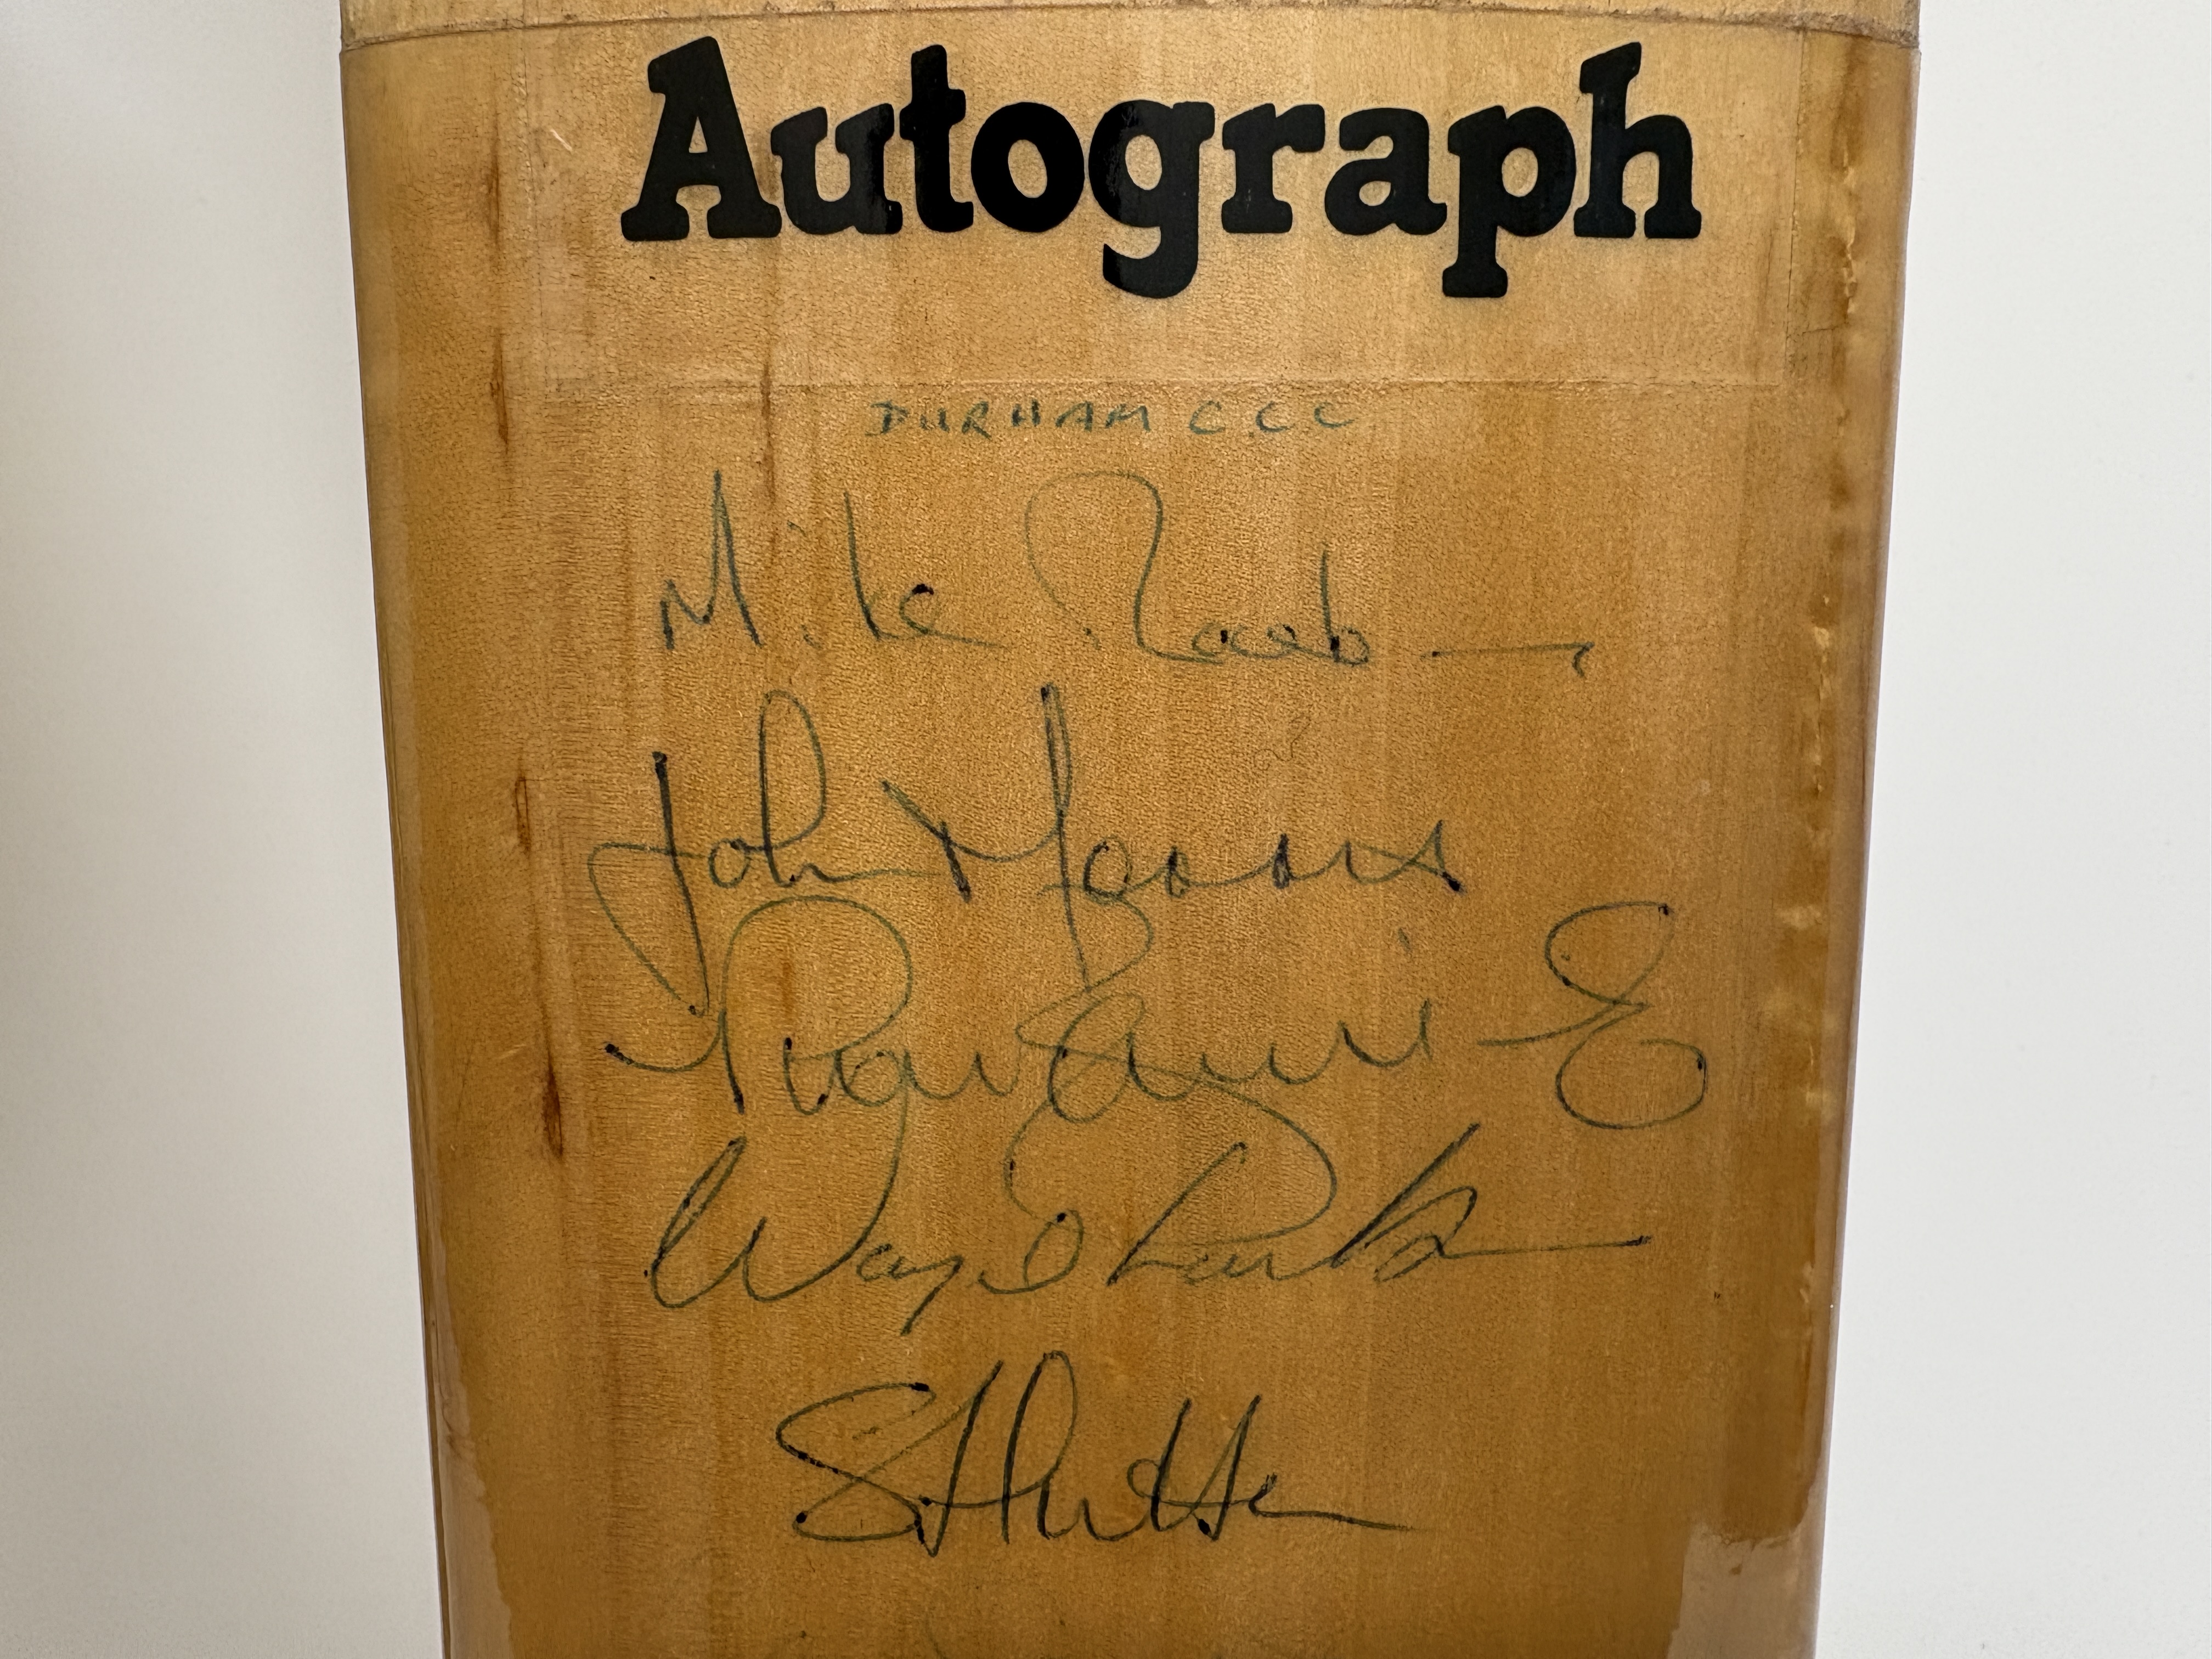 Autograph
DURHAM C.C.C
Mike Roseb
John Morris
Wayne Larkins
S Hutton